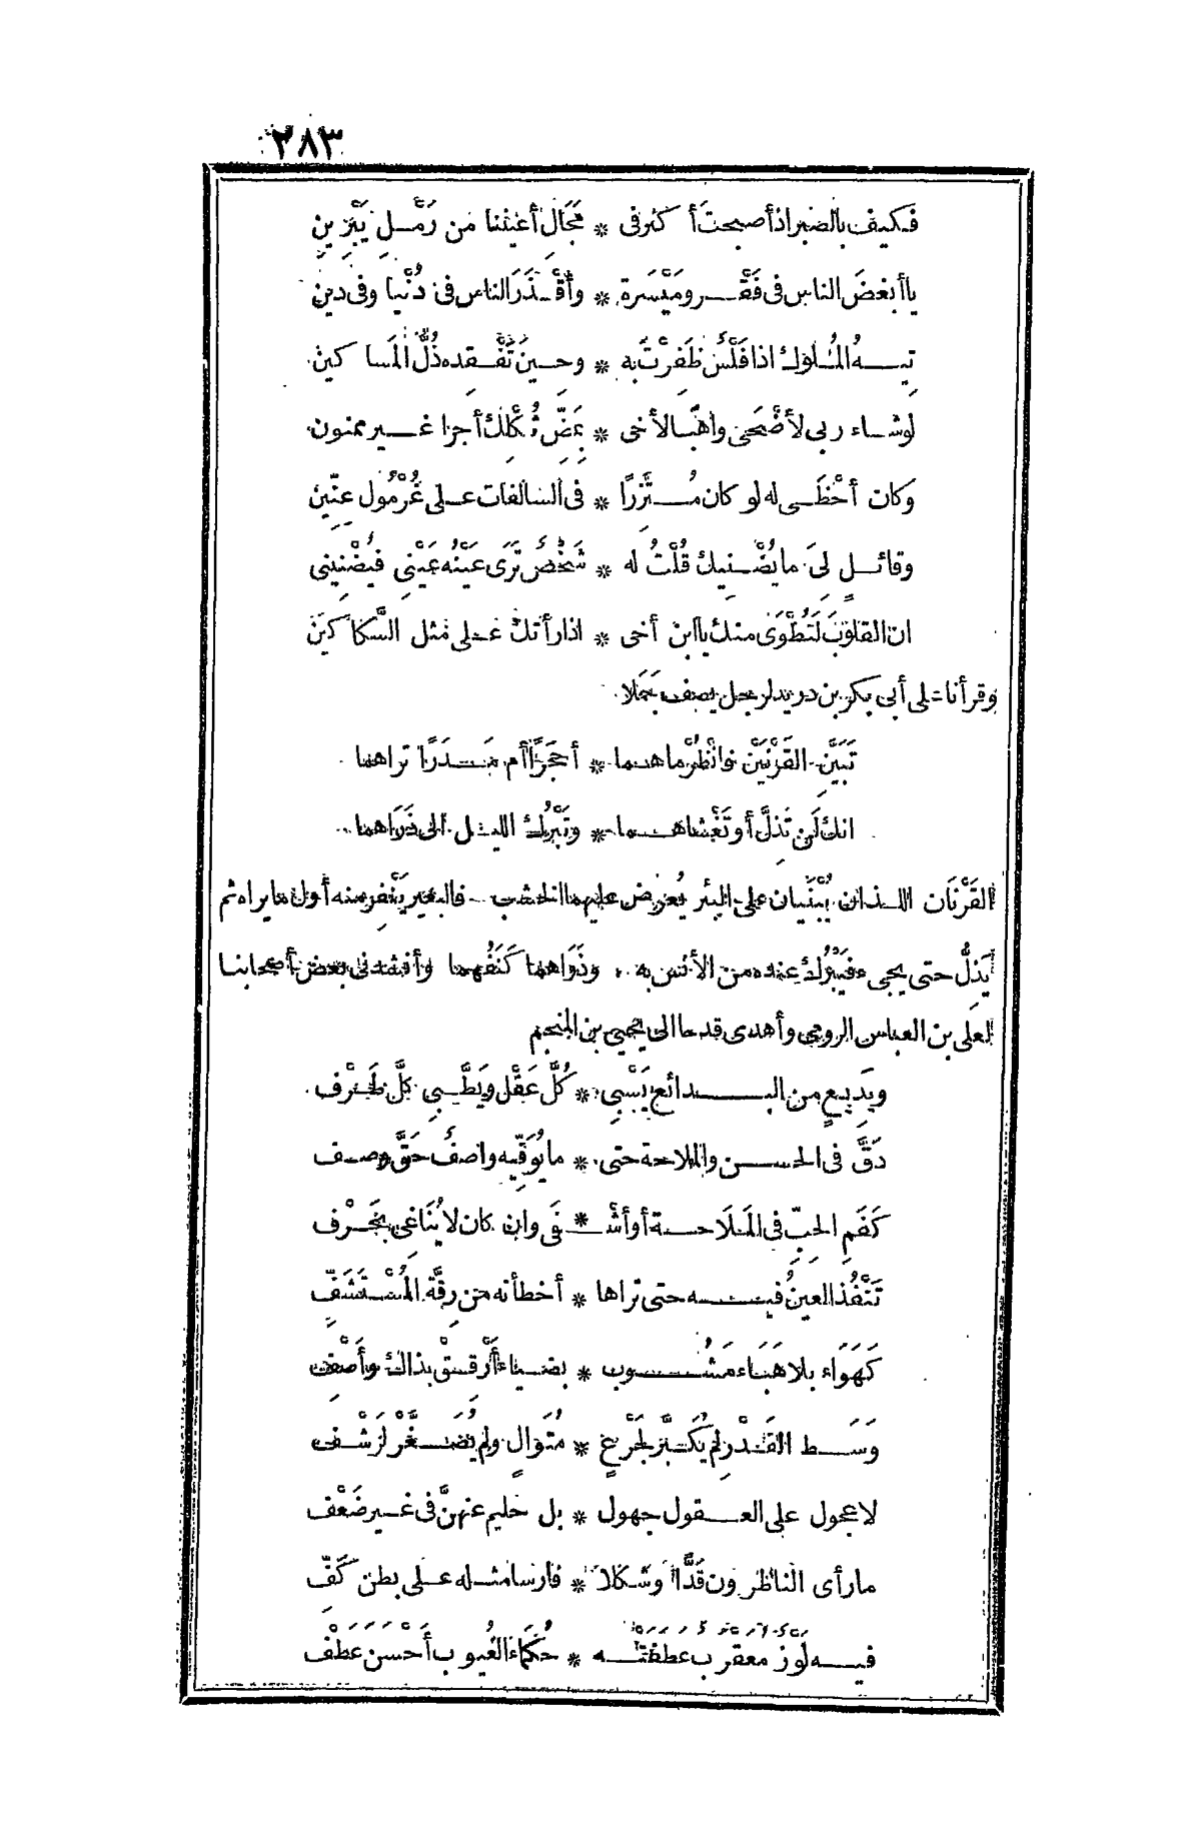 ٢٨٣
فكيف بالصبر اذ أصبحتَ أكثر فى * مَجَالِ أعيننا من رَمْلِ يَبْرِينِ
يا أبغضَ الناس فى فَقْر ومَيْسَرة * وأقْذَرَ الناس فى دُنْيا وفى دين
تِيهُ المُلوك اذا فَلْسٌ ظَفِرْتَ به * وحين تَفْقده ذُلُّ المَساكين
لوشاء ربى لأضْحَى واهبًا لأخى * بمَضِّ ثُكْلِك أجرا غير ممنون
وكان أحْظَى له لو كان مُتَّزِرًا * فى السالفات على غُرْمُول عِنِّين
وقائلٍ لِىَ ما يُضْنيك قُلْتُ له * شَخْصٌ تَرَى عَيْنُه عَيْنِى فيُضْنِينى
ان القلوبَ لَتُطْوَى منك يا ابن أخى * اذا رأتك على مثل السَّكاكين
وقرأنا على أبى بكر بن دريد لرجل يصف جَمَلا
تَبَيَّنِ القَرْنَيْن وانْظُرْ ما هما * أحَجَرًا أم مَدَرًا تراهما
انك لَن تَذِلَّ أو تَغْشاهما * وتَبْرُك الليل الى ذَرَاهما
القَرْنَان اللذان يُبْنَيان على البئر يُعرض عليهما الخشب فالبعير يَنْفِر منه أول ما يراه ثم
يَذِلُّ حتى يجىء فيَبْرُك عنده من الأنس به وذَرَاهما كَنَفُهما وأنشدنى بعض أصحابنا
لعلى بن العباس الرومى وأهدى قدحا الى يحيى بن المنجم
وبَدِيعٍ من البدائع يَسْبِى * كُلَّ عَقْل ويَطَّبِى كلَّ طَرْف
دَقَّ فى الحسن والملاحة حتى * ما يُوَفِّيه واصفٌ حَقَّ وصف
كَفَمِ الحِبِّ فى المَلَاحة أو أشْـ * ـفَى وان كان لا يُنَاغِى بحَرْف
تَنْفُذ العينُ فيه حتى تراها * أخطأته من رِقَّة المُسْتَشَفِّ
كَهَوَاء بلا هَبَاء مَشُوب * بضياء أَرْقِقْ بذاك وأَصْفِ
وَسَط القَدْر لم يُكَبَّر لجَرْعٍ * مُتَوالٍ ولم يُصَغَّرْ لرَشْف
لا عجول على العقول جهول * بل حليم عنهنَّ فى غير ضَعْف
ما رأى الناظرون قَدًّا وشكلا * فارسا مثله على بطن كَفِّ
فيه لَوْز معقرب عطفته * حُكَماء الغُيوب أَحْسَنَ عَطْف